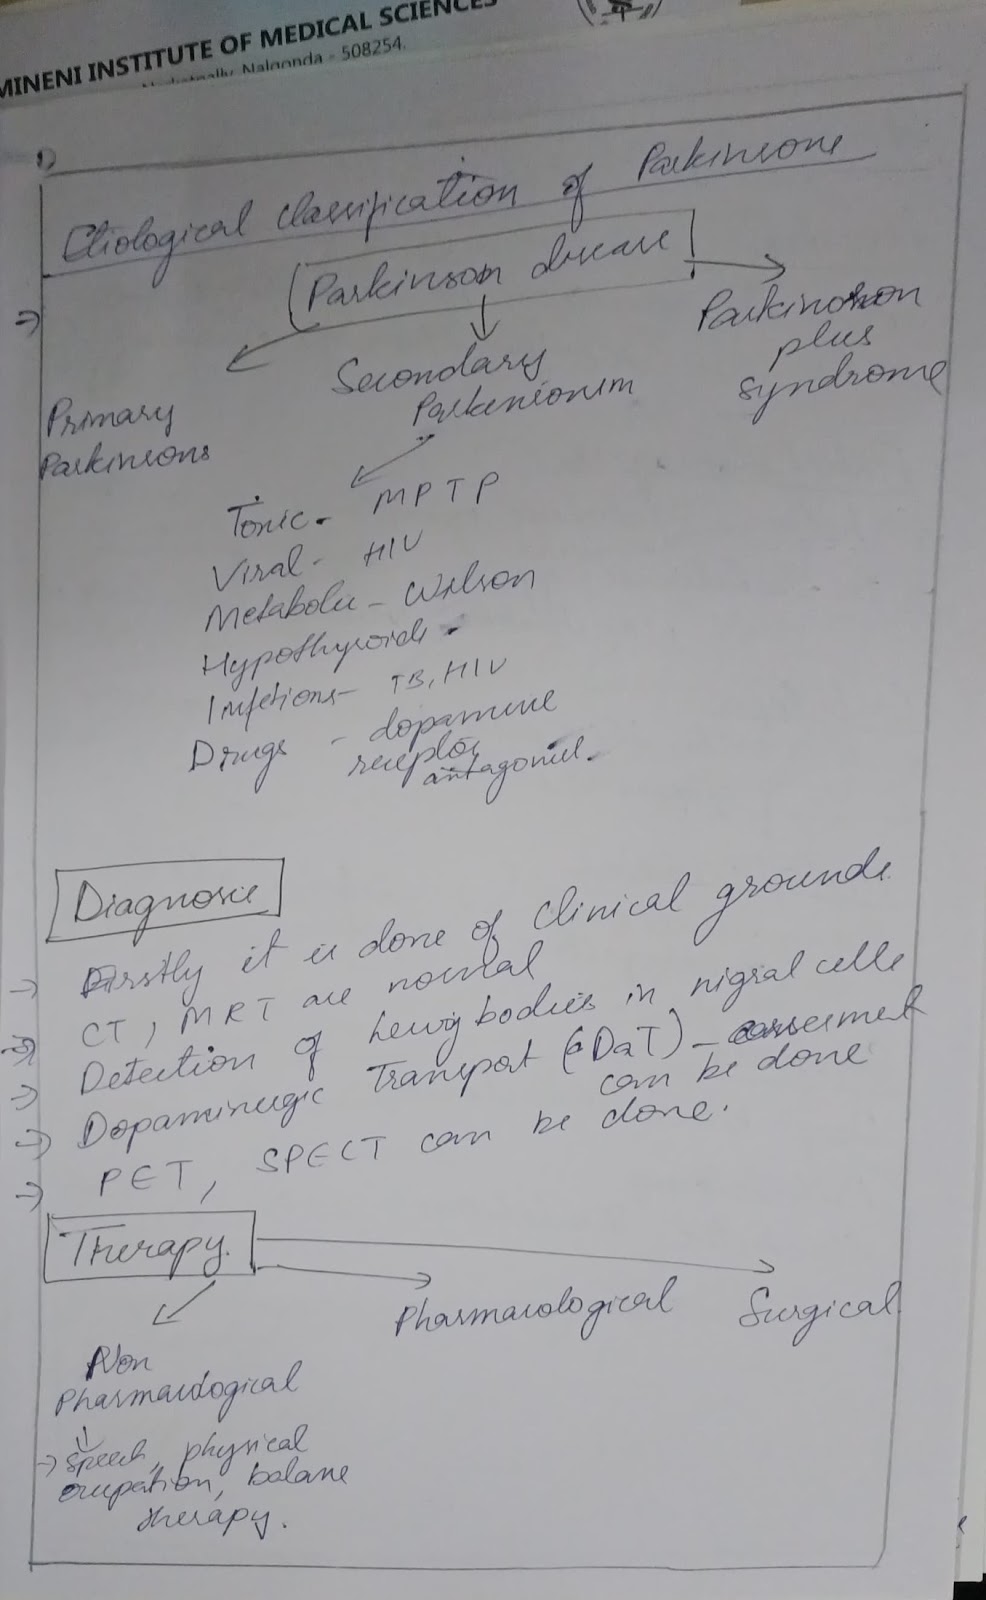 MINENI INSTITUTE OF MEDICAL SCIENCES
Nalgonda - 508254.
1)
Etiological classification of Parkinsons
Parkinson disease
Primary Parkinsons
Secondary Parkinsonism
Parkinson plus syndrome
Toxic - MPTP
Viral - HIV
Metabolic - Wilson
Hypothyroids -
Infetions - TB, HIV
Drugs - dopamine
receptor
antagonist.
Diagnosis
Firstly it is done of clinical grounds
CT, MRT are normal
Detection of Lewy bodies in nigral cells
Dopaminergic Transport (DaT) - assessment
can be done
PET, SPECT can be done.
Therapy.
Non
Pharmacological
Pharmacological
Surgical
speech, physical
occupation, balane
therapy.